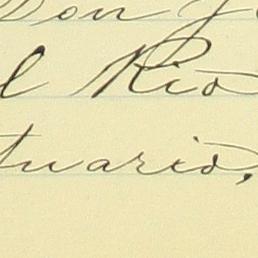 Don J
l Rio
tuario,